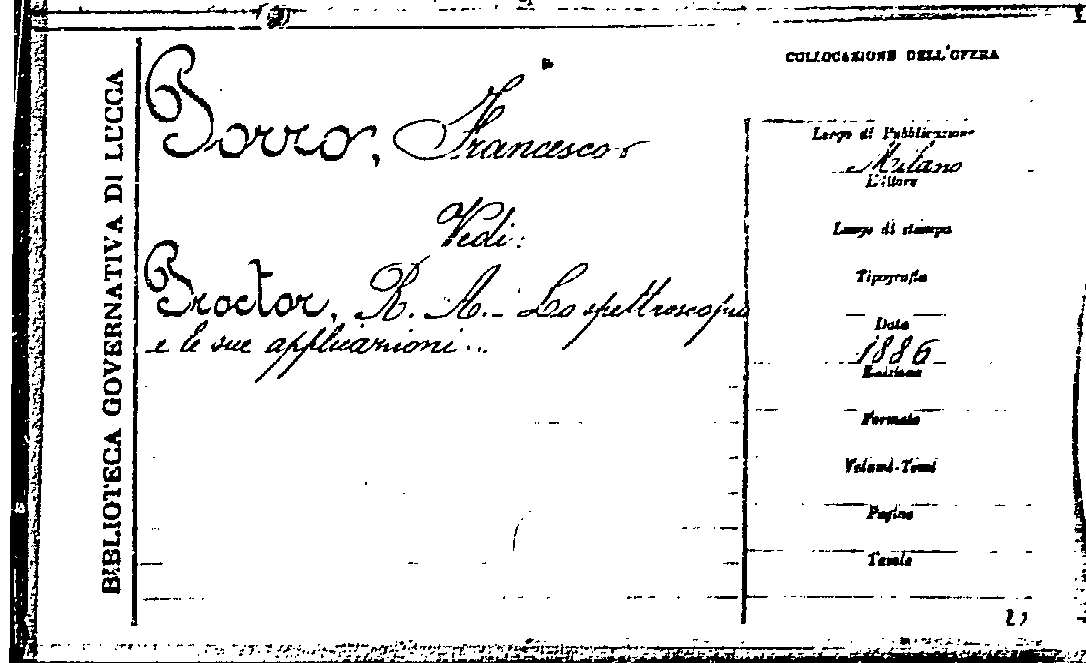 BIBLIOTECA GOVERNATIVA DI LUCCA
Porro, Francesco
Vedi:
Proctor, R. A. - Lo spettroscopio
e le sue applicazioni...
COLLOCAZIONE DELL'OPERA
Luogo di Pubblicazione
Milano
Editore
Luogo di stampa
Tipografia
Data
1886
Edizione
Formato
Volumi-Tomi
Pagine
Tavole